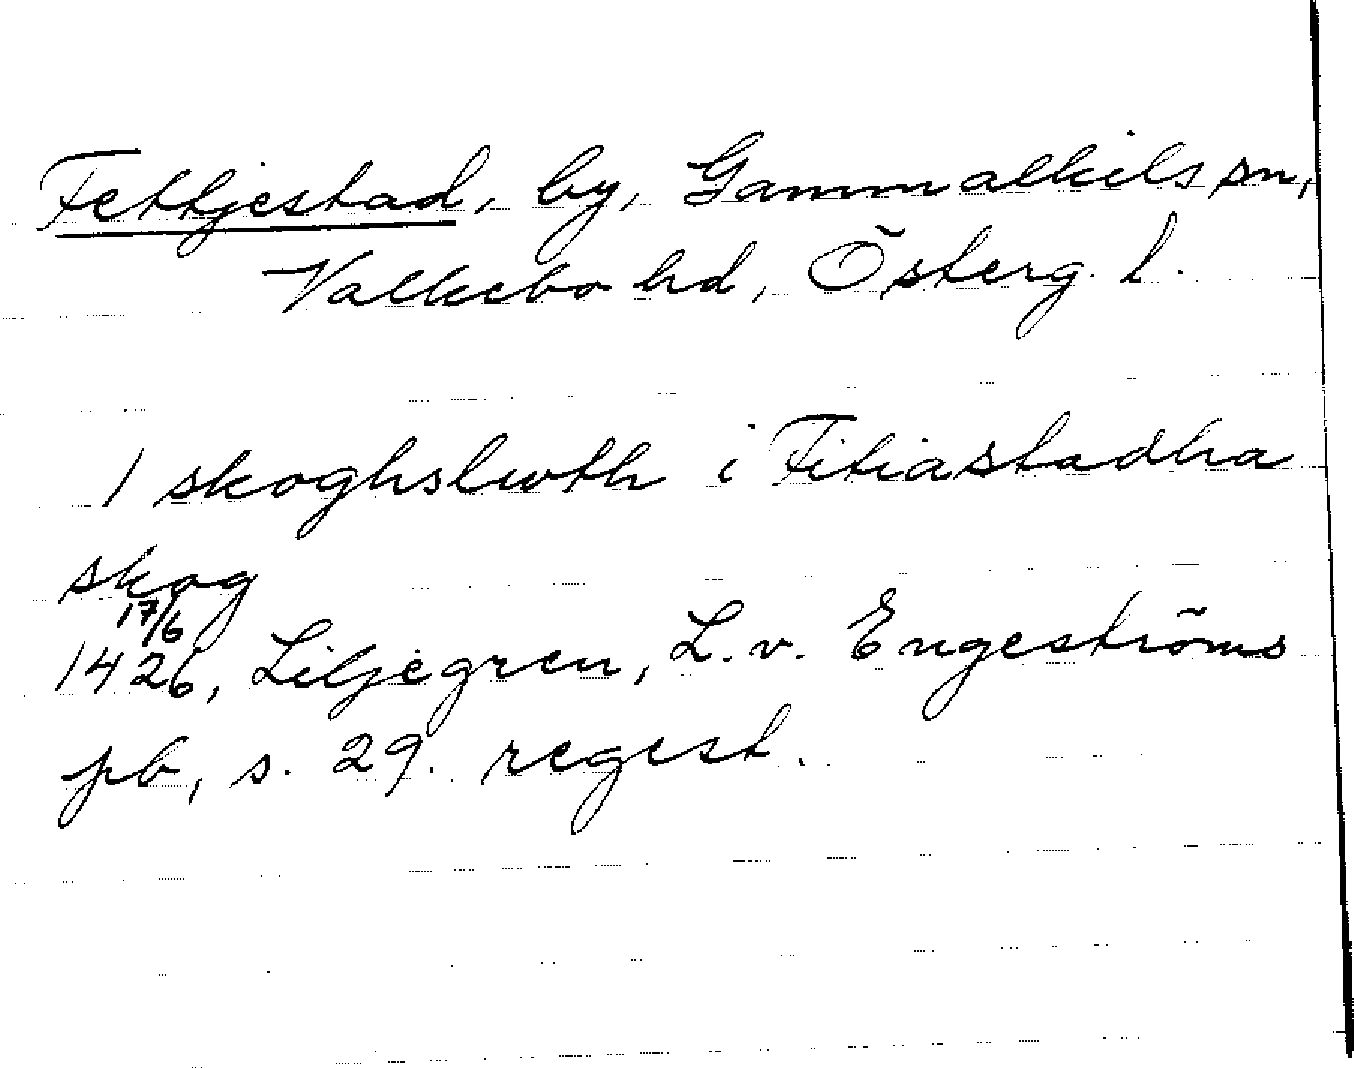 Fettjestad, by, Gammalkils sn,
Valkebo hd, Österg. l.
1 skoghslwth i Fitiastadha
skog
17/6
1426, Liljegren, L. v. Engeströms
pb, s. 29. regest.